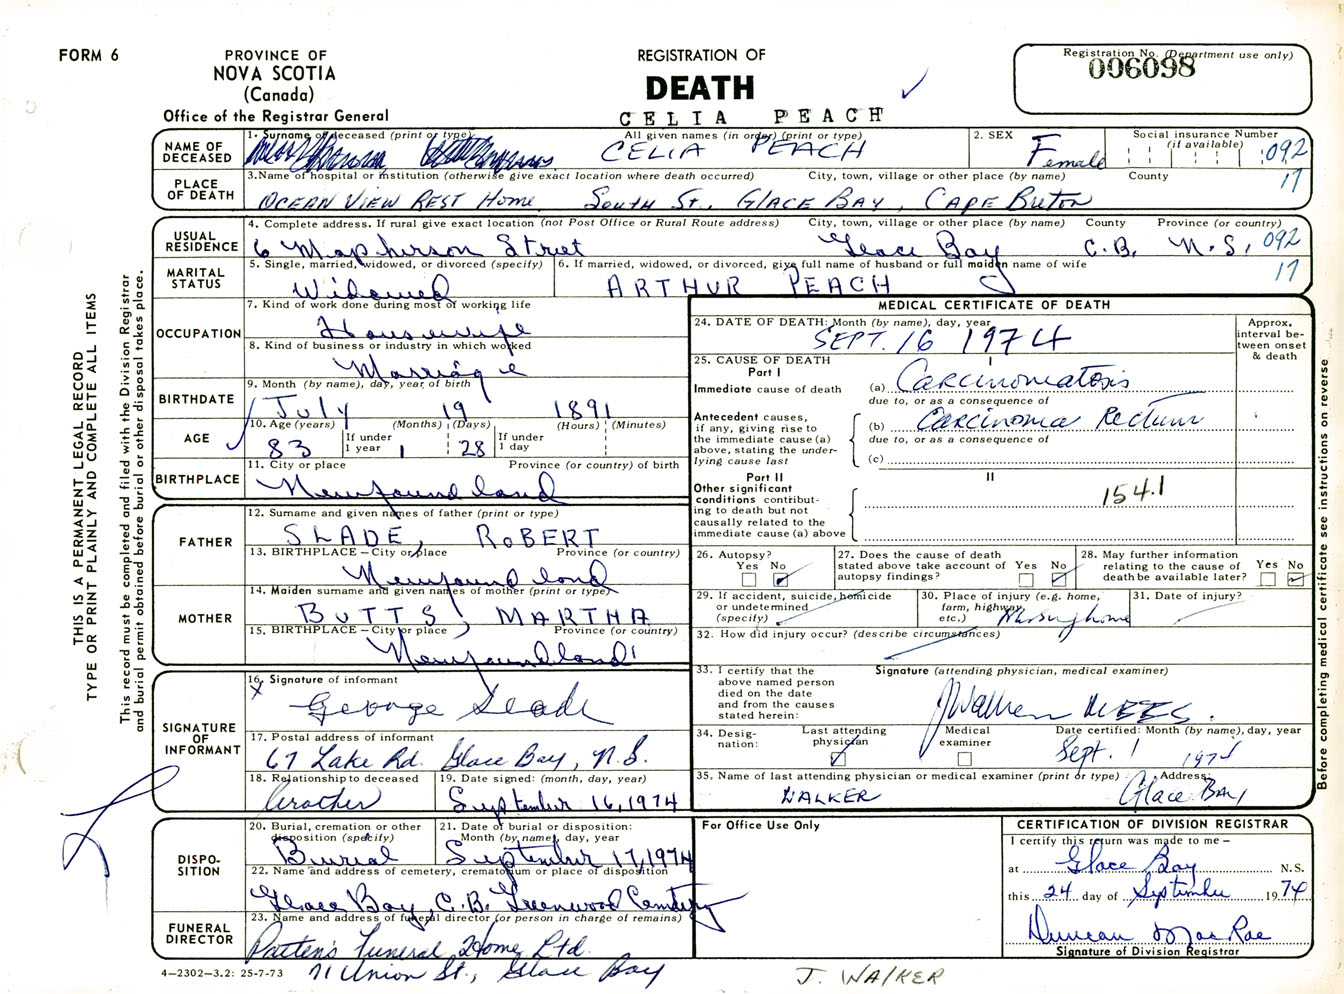 FORM 6
PROVINCE OF
NOVA SCOTIA
(Canada)
Office of the Registrar General
REGISTRATION OF
DEATH
CELIA PEACH
Registration No. (Department use only)
006098
NAME OF DECEASED
1. Surname of deceased (print or type)
All given names (in order) (print or type)
CELIA PEACH
2. SEX
Female
Social insurance Number
(if available)
092
PLACE OF DEATH
3. Name of hospital or institution (otherwise give exact location where death occurred)
City, town, village or other place (by name)
County
17
OCEAN VIEW REST HOME South St., GLACE BAY, CAPE BRETON
USUAL RESIDENCE
4. Complete address. If rural give exact location (not Post Office or Rural Route address)
City, town, village or other place (by name)
County
Province (or country)
6 Street Glace Bay C.B. N.S. 092
MARITAL STATUS
5. Single, married, widowed, or divorced (specify)
Widowed
6. If married, widowed, or divorced, give full name of husband or full maiden name of wife
17
ARTHUR PEACH
OCCUPATION
7. Kind of work done during most of working life
Housewife
8. Kind of business or industry in which worked
Marriage
BIRTHDATE
9. Month (by name), day, year of birth
July 19 1891
AGE
10. Age (years)
(Months)
(Days)
(Hours)
(Minutes)
If under 1 year
If under 1 day
83 1 28
BIRTHPLACE
11. City or place
Province (or country) of birth
Newfoundland
FATHER
12. Surname and given names of father (print or type)
SLADE, ROBERT
13. BIRTHPLACE – City or place
Province (or country)
Newfoundland
MOTHER
14. Maiden surname and given names of mother (print or type)
BUTTS, MARTHA
15. BIRTHPLACE – City or place
Province (or country)
Newfoundland
SIGNATURE OF INFORMANT
16. Signature of informant
X George Slade
17. Postal address of informant
67 Lake Rd. Glace Bay, N.S.
18. Relationship to deceased
brother
19. Date signed: (month, day, year)
September 16, 1974
DISPOSITION
20. Burial, cremation or other disposition (specify)
Burial
21. Date of burial or disposition:
Month (by name), day, year
September 17, 1974
22. Name and address of cemetery, crematorium or place of disposition
Glace Bay, C.B. Greenwood Cemetery
FUNERAL DIRECTOR
23. Name and address of funeral director (or person in charge of remains)
Patten's Funeral Home Ltd.
71 Union St., Glace Bay
4–2302–3.2: 25-7-73
MEDICAL CERTIFICATE OF DEATH
24. DATE OF DEATH: Month (by name), day, year
SEPT. 16 1974
Approx. interval between onset & death
25. CAUSE OF DEATH
Part I
I
Immediate cause of death
(a) Carcinomatosis
due to, or as a consequence of
Antecedent causes, if any, giving rise to the immediate cause (a) above, stating the underlying cause last
(b) Carcinoma Rectum
due to, or as a consequence of
(c)
Part II
II
Other significant conditions contributing to death but not causally related to the immediate cause (a) above
154.1
26. Autopsy?
Yes No
27. Does the cause of death stated above take account of autopsy findings?
Yes No
28. May further information relating to the cause of death be available later?
Yes No
29. If accident, suicide, homicide or undetermined (specify)
30. Place of injury (e.g. home, farm, highway, etc.)
Nursing home
31. Date of injury?
32. How did injury occur? (describe circumstances)
33. I certify that the above named person died on the date and from the causes stated herein:
Signature (attending physician, medical examiner)
J Walker
34. Designation:
Last attending physician
Medical examiner
Date certified: Month (by name), day, year
Sept. 1 1974
35. Name of last attending physician or medical examiner (print or type)
WALKER
Address:
Glace Bay
For Office Use Only
CERTIFICATION OF DIVISION REGISTRAR
I certify this return was made to me –
at Glace Bay N.S.
this 24 day of September 1974
Duncan MacRae
Signature of Division Registrar
J. WALKER
THIS IS A PERMANENT LEGAL RECORD
TYPE OR PRINT PLAINLY AND COMPLETE ALL ITEMS
This record must be completed and filed with the Division Registrar
and burial permit obtained before burial or other disposal takes place.
Before completing medical certificate see instructions on reverse